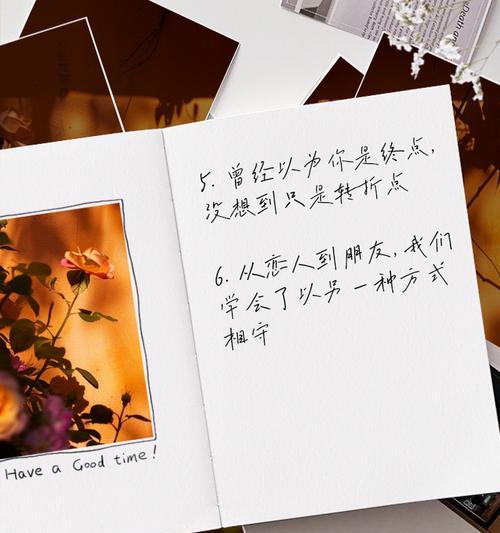 Death an
5. 曾经以为你是终点，
没想到只是转折点
6. 从恋人到朋友，我们
学会了以另一种方式
相守
Have a Good time!